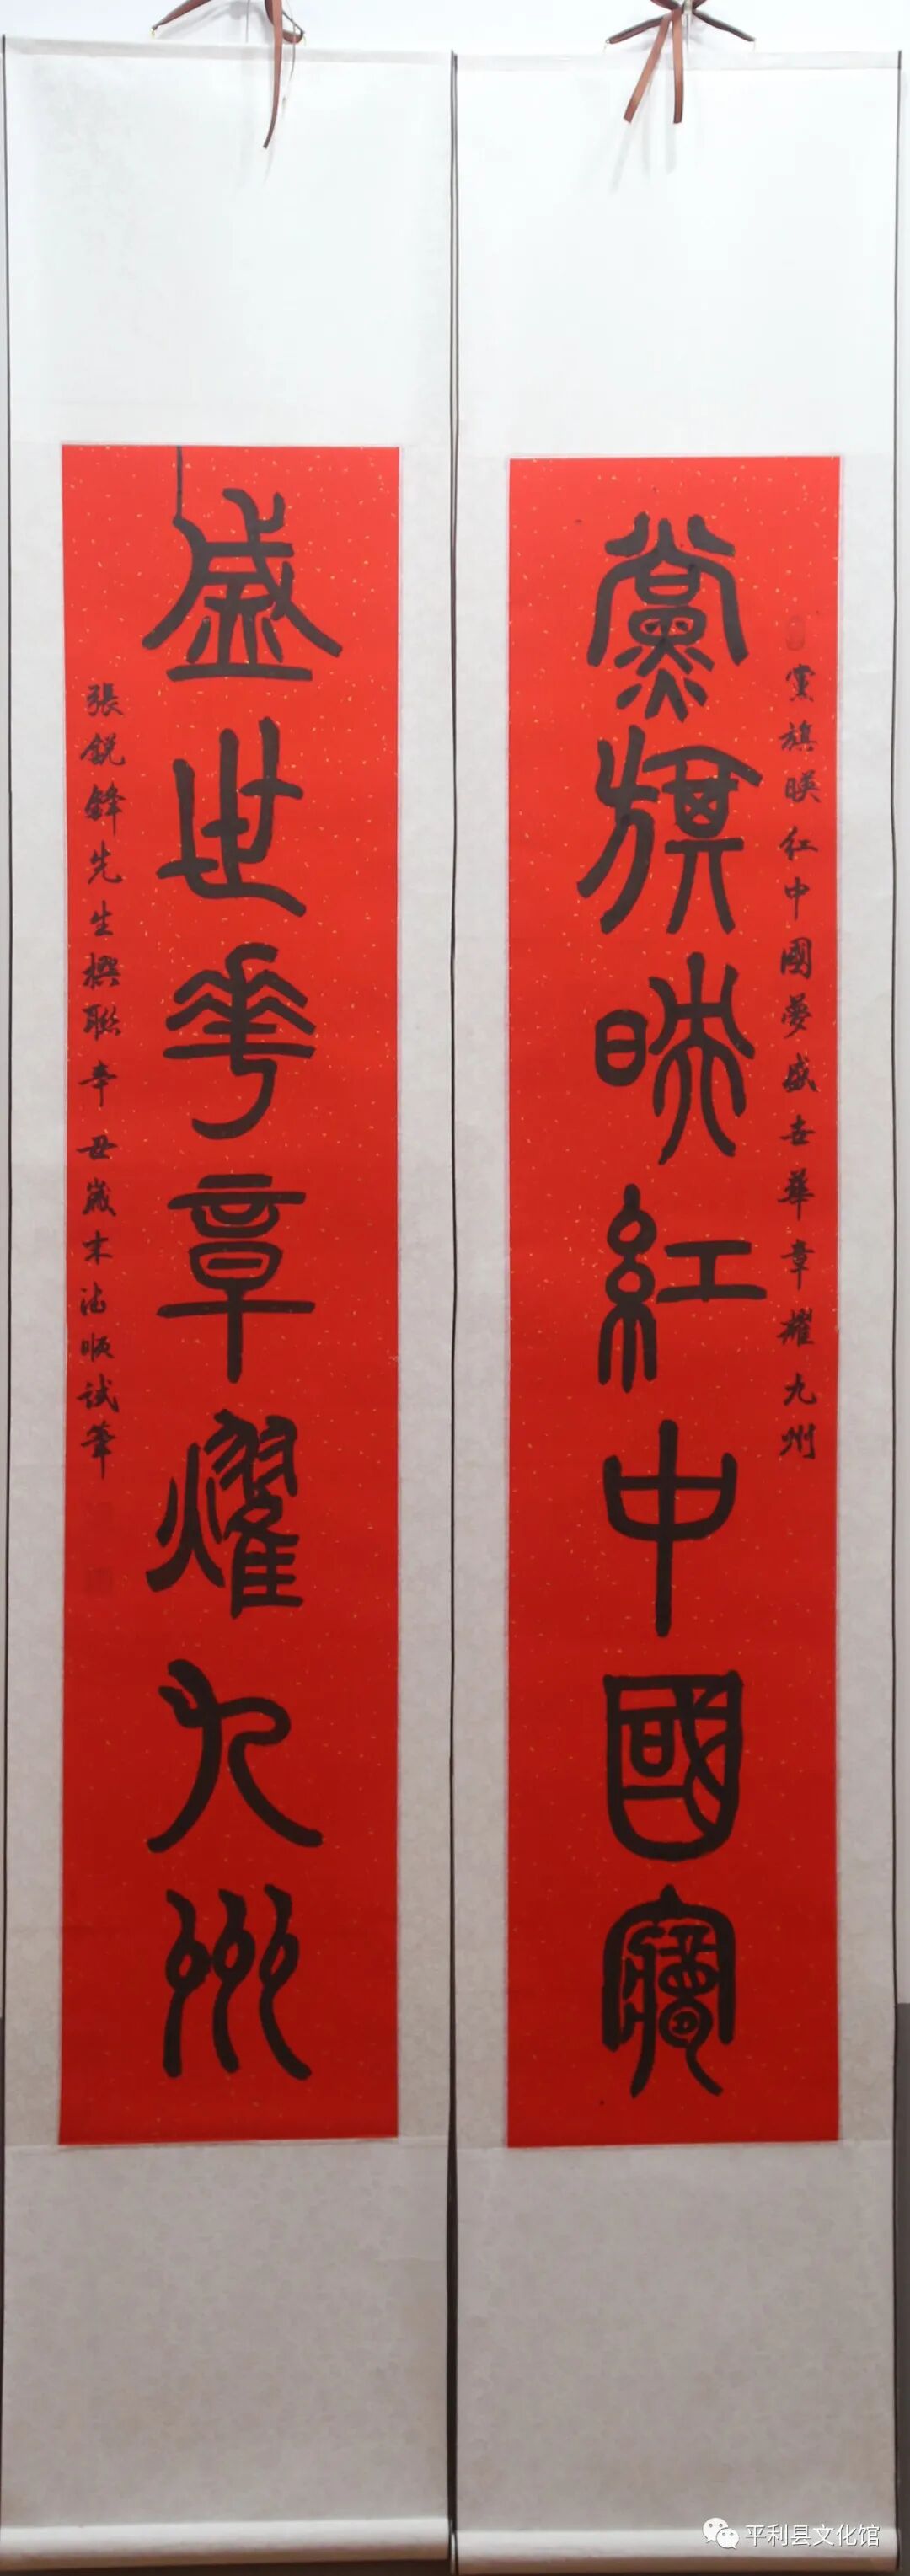 黨旗映紅中國夢
黨旗暎红中國夢盛世華章耀九州
盛世華章耀九州
張銳鋒先生撰聯辛丑歲末 順試筆
平利县文化馆